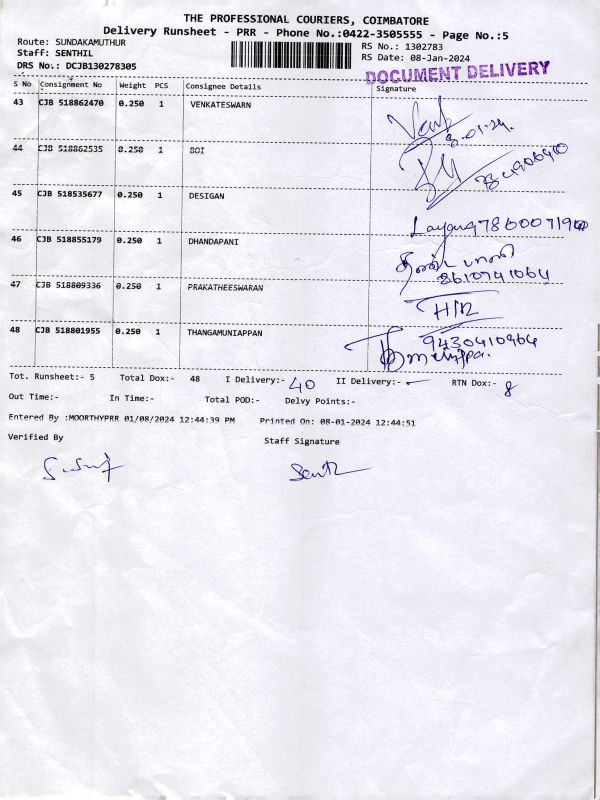 THE PROFESSIONAL COURIERS, COIMBATORE
Delivery Runsheet - PRR - Phone No.:0422-3505555 - Page No.:5
Route: SUNDAKAMUTHUR
Staff: SENTHIL
DRS No.: DCJB130278305
RS No.: 1302783
RS Date: 08-Jan-2024
DOCUMENT DELIVERY
S No Consignment No Weight PCS Consignee Details Signature
43 CJB 518862470 0.250 1 VENKATESWARN
8.01.24.
44 CJB 518862535 0.250 1 BOI
45 CJB 518535677 0.250 1 DESIGAN
46 CJB 518855179 0.250 1 DHANDAPANI
தண்டபாணி
8610741064
47 CJB 518809336 0.250 1 PRAKATHEESWARAN
48 CJB 518801955 0.250 1 THANGAMUNIAPPAN
9430410964
Tot. Runsheet:- 5 Total Dox:- 48 I Delivery:- 40 II Delivery:- - RTN Dox:- 8
Out Time:- In Time:- Total POD:- Delvy Points:-
Entered By :MOORTHYPRR 01/08/2024 12:44:39 PM Printed On: 08-01-2024 12:44:51
Verified By Staff Signature